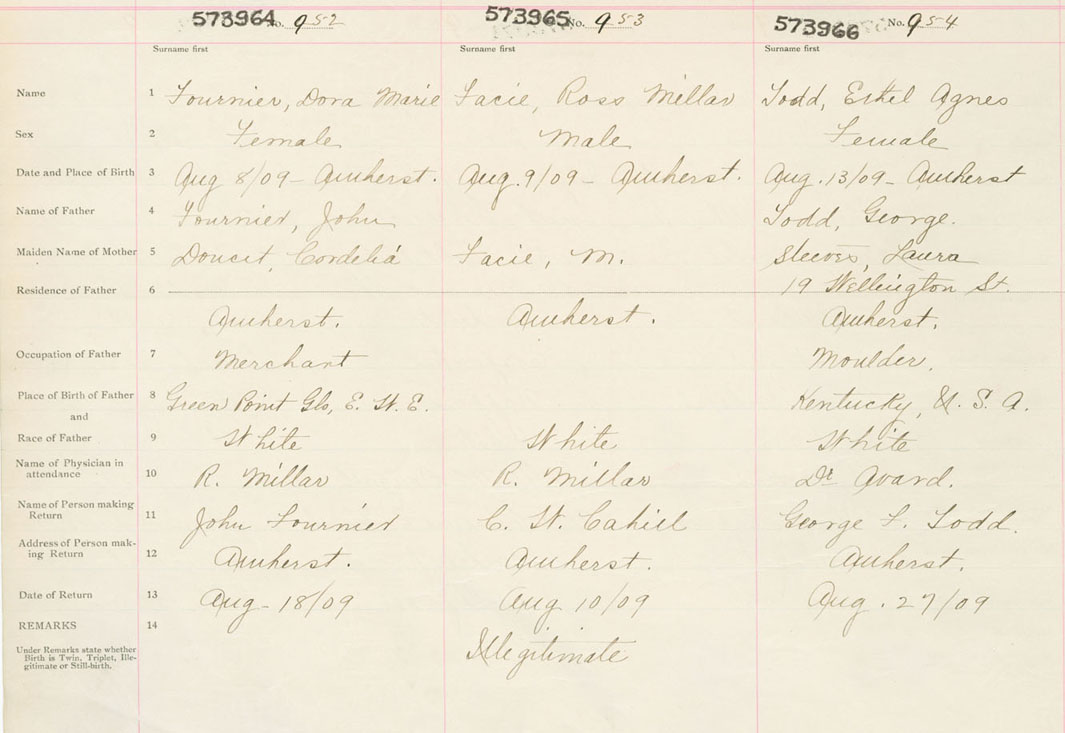 573964 No. 952 573965 No. 953 573966 No. 954
Surname first Surname first Surname first
Name 1 Fournier, Dora Marie Facie, Ross Millar Todd, Ethel Agnes
Sex 2 Female Male Female
Date and Place of Birth 3 Aug 8/09 - Amherst. Aug. 9/09 - Amherst. Aug. 13/09 - Amherst
Name of Father 4 Fournier, John Todd, George.
Maiden Name of Mother 5 Doucet, Cordelia Facie, M. Steeves, Laura
Residence of Father 6 19 Wellington St.
Amherst. Amherst. Amherst.
Occupation of Father 7 Merchant Moulder.
Place of Birth of Father 8 Green Point Glo, E. W. E. Kentucky, U. S. A.
and
Race of Father 9 White White White
Name of Physician in
attendance 10 R. Millar R. Millar Dr Avard.
Name of Person making
Return 11 John Fournier C. W. Cahill George F. Todd.
Address of Person mak-
ing Return 12 Amherst. Amherst. Amherst.
Date of Return 13 Aug - 18/09 Aug 10/09 Aug. 27/09
REMARKS 14
Under Remarks state whether
Birth is Twin, Triplet, Ille-
gitimate or Still-birth.
Illegitimate